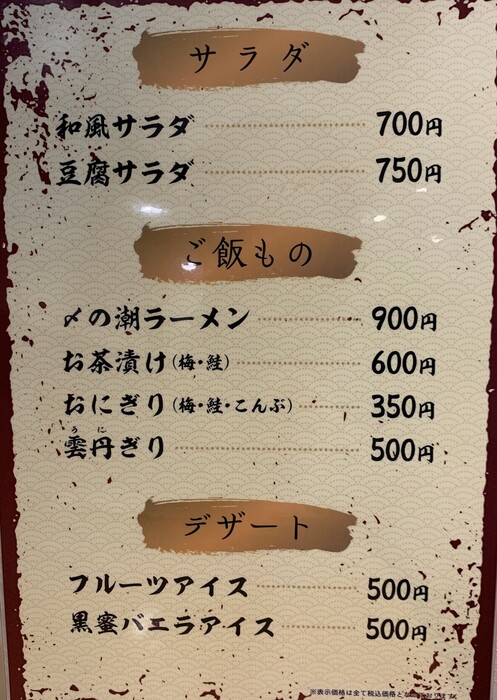 サラダ
和風サラダ 700円
豆腐サラダ 750円
ご飯もの
〆の潮ラーメン 900円
お茶漬け(梅・鮭) 600円
おにぎり(梅・鮭・こんぶ) 350円
うに
雲丹ぎり 500円
デザート
フルーツアイス 500円
黒蜜バエラアイス 500円
※表示価格は全て税込価格となっております